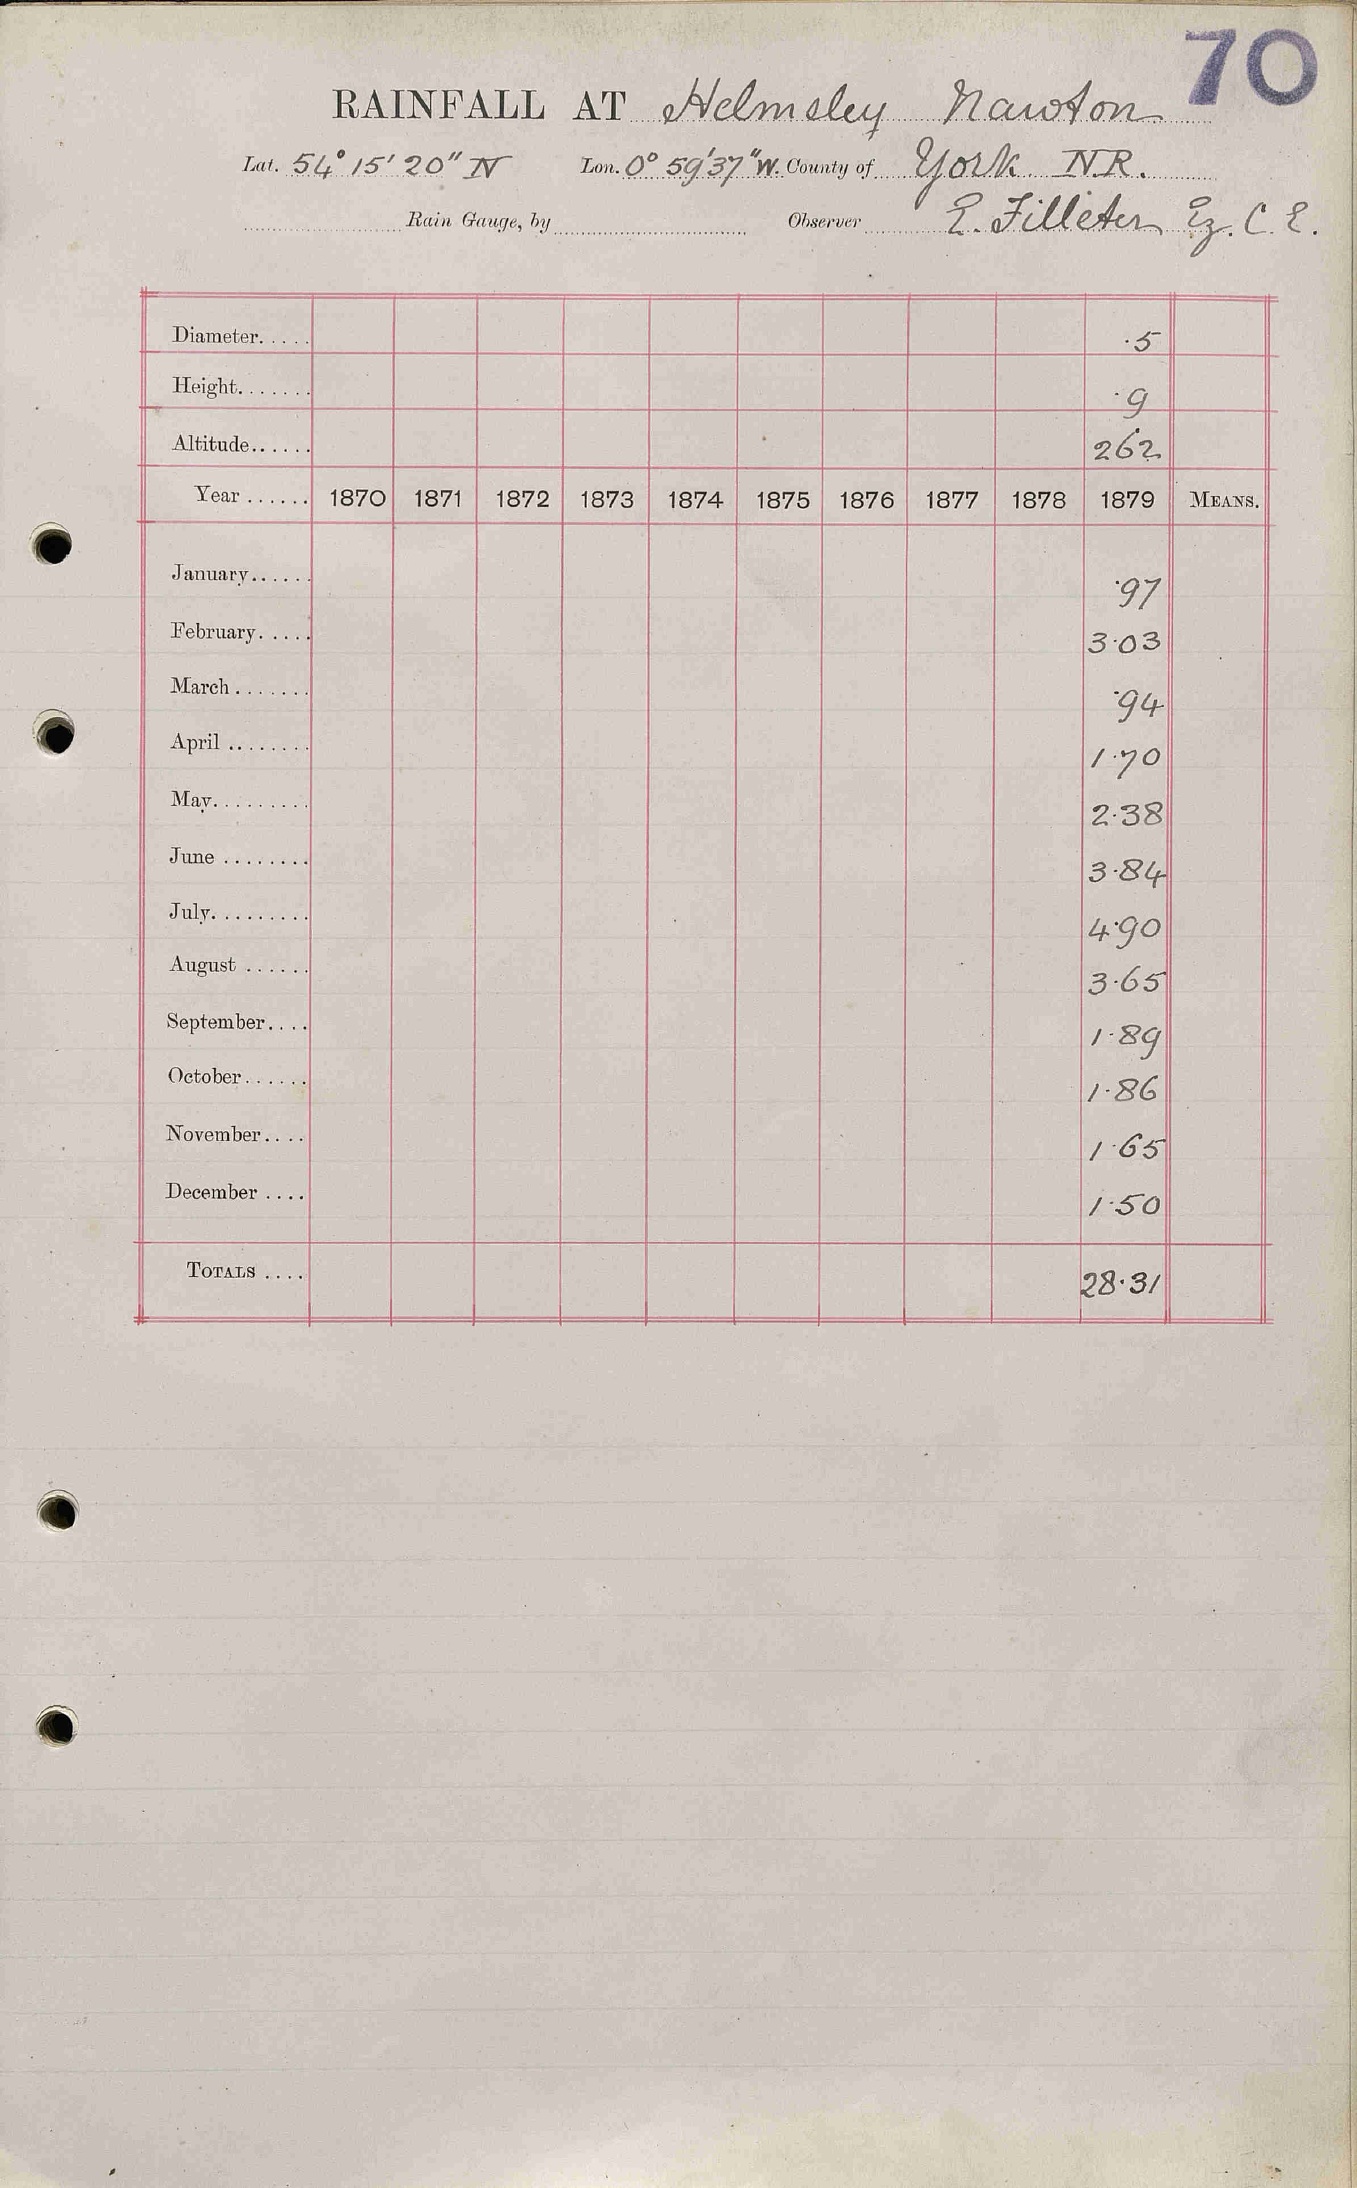 70
RAINFALL AT Helmsley Nawton
Lat. 54° 15' 20" N Lon. 0° 59' 37" W. County of York N.R.
Rain Gauge, by Observer E. Filleter Ez. C. E.
Diameter..... ·5
Height....... ·9
Altitude...... 262
Year ...... 1870 1871 1872 1873 1874 1875 1876 1877 1878 1879 MEANS.
January...... ·97
February..... 3·03
March ....... ·94
April ........ 1·70
May......... 2·38
June ........ 3·84
July......... 4·90
August ...... 3·65
September.... 1·89
October...... 1·86
November.... 1·65
December .... 1·50
TOTALS .... 28·31